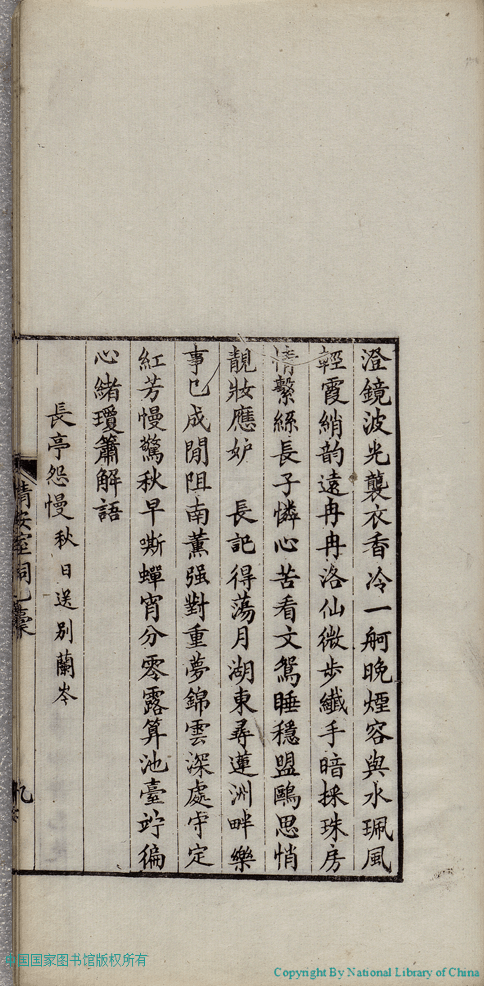 澄鏡波光襲衣香冷一舸晚煙容與水珮風
輕霞綃韵遠冉冉洛仙微步纖手暗採珠房
情繫絲長子憐心苦看文鴛睡穩盟鷗思悄
靚妝應妒　長記得蕩月湖東尋蓮洲畔樂
事已成閒阻南薰强對重夢錦雲深處守定
紅芳慢驚秋早嘶蟬宵分零露算池臺竚徧
心緒瓊簫解語
長亭怨慢秋日送別蘭岑
室詞
中国国家图书馆版权所有
Copyright By National Library of China